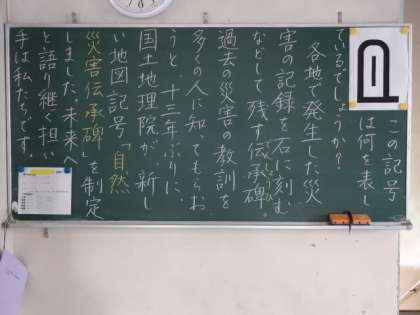 この記号
は何を表し
ているでしょうか？
各地で発生した災
害の記録を石に刻む
などして残す伝承碑。
過去の災害の教訓を
多くの人に知ってもらお
うと、十三年ぶりに、
国土地理院が新し
い地図記号「自然
災害伝承碑」を制定
しました。未来へ
と語り継ぐ担い
手は私たちです。